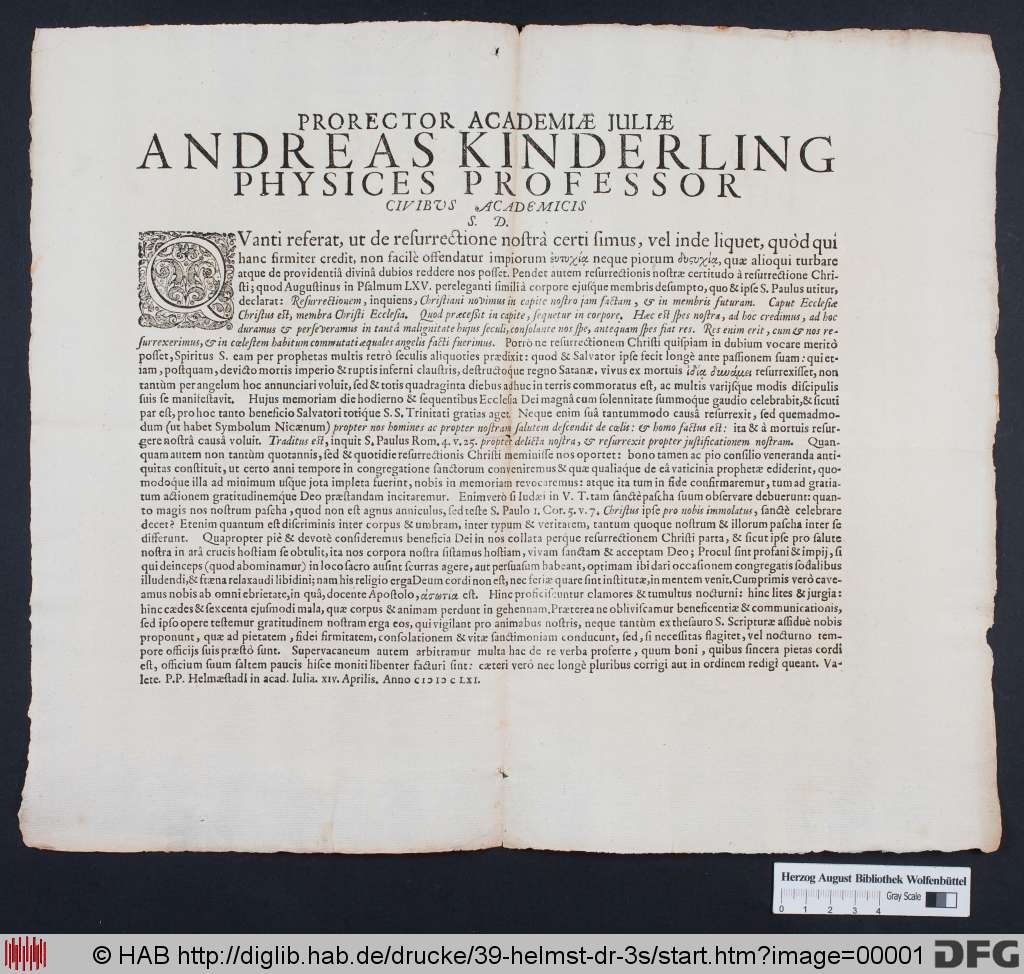 PRORECTOR ACADEMIÆ JULIÆ
ANDREAS KINDERLING
PHYSICES PROFESSOR
CIVIBUS ACADEMICIS
S. D.
QVanti referat, ut de resurrectione nostrâ certi simus, vel inde liquet, quòd qui
hanc firmiter credit, non facilè offendatur impiorum ἐυτυχία neque piorum δυςυχία, quæ alioqui turbare
atque de providentiâ divinâ dubios reddere nos posset. Pendet autem resurrectionis nostræ certitudo à resurrectione Chri-
sti; quod Augustinus in Psalmum LXV. pereleganti simili à corpore ejusque membris desumpto, quo & ipse S. Paulus utitur,
declarat: Resurrectionem, inquiens, Christiani novimus in capite nostro jam factam, & in membris futuram. Caput Ecclesiæ
Christus est, membra Christi Ecclesia. Quod præcessit in capite, sequetur in corpore. Hæc est spes nostra, ad hoc credimus, ad hoc
duramus & perseveramus in tantâ malignitate hujus seculi, consolante nos spe, antequam spes fiat res. Res enim erit, cum & nos re-
surrexerimus, & in cœlestem habitum commutati æquales angelis facti fuerimus. Porrò ne resurrectionem Christi quispiam in dubium vocare meritò
posset, Spiritus S. eam per prophetas multis retrò seculis aliquoties prædixit: quod & Salvator ipse fecit longè ante passionem suam: qui et-
iam, postquam, devicto mortis imperio & ruptis inferni claustris, destructoque regno Satanæ, vivus ex mortuis ἰδίᾳ δυνάμει resurrexisset, non
tantùm per angelum hoc annunciari voluit, sed & totis quadraginta diebus adhuc in terris commoratus est, ac multis variisque modis discipulis
suis se manifestavit. Hujus memoriam die hodierno & sequentibus Ecclesia Dei magnâ cum solennitate summoque gaudio celebrabit, & sicuti
par est, pro hoc tanto beneficio Salvatori totique S. S. Trinitati gratias aget. Neque enim suâ tantummodo causâ resurrexit, sed quemadmo-
dum (ut habet Symbolum Nicænum) propter nos homines ac propter nostram salutem descendit de cœlis: & homo factus est: ita & à mortuis resur-
gere nostrâ causâ voluit. Traditus est, inquit S. Paulus Rom. 4. v. 25. propter delicta nostra, & resurrexit propter justificationem nostram. Quan-
quam autem non tantùm quotannis, sed & quotidie resurrectionis Christi meminisse nos oportet: bono tamen ac pio consilio veneranda anti-
quitas constituit, ut certo anni tempore in congregatione sanctorum conveniremus & quæ qualiaque de eâ vaticinia prophetæ ediderint, quo-
modoque illa ad minimum usque jota impleta fuerint, nobis in memoriam revocaremus: atque ita tum in fide confirmaremur, tum ad gratia-
tum actionem gratitudinemque Deo præstandam incitaremur. Enimverò si Iudæi in V. T. tam sanctè pascha suum observare debuerunt: quan-
to magis nos nostrum pascha, quod non est agnus anniculus, sed teste S. Paulo 1. Cor. 5. v. 7. Christus ipse pro nobis immolatus, sanctè celebrare
decet? Etenim quantum est discriminis inter corpus & umbram, inter typum & veritatem, tantum quoque nostrum & illorum pascha inter se
differunt. Quapropter piè & devotè consideremus beneficia Dei in nos collata perque resurrectionem Christi parta, & sicut ipse pro salute
nostra in arâ crucis hostiam se obtulit, ita nos corpora nostra sistamus hostiam, vivam sanctam & acceptam Deo; Procul sint profani & impij, si
qui deinceps (quod abominamur) in loco sacro ausint scurras agere, aut persuasum habeant, optimam ibi dari occasionem congregatis sodalibus
illudendi, & fræna relaxandi libidini; nam his religio erga Deum cordi non est, nec feriæ quare sint institutæ, in mentem venit. Cumprimis verò cave-
amus nobis ab omni ebrietate, in quâ, docente Apostolo, ἀσωτία est. Hinc proficiscuntur clamores & tumultus nocturni: hinc lites & jurgia:
hinc cædes & sexcenta ejusmodi mala, quæ corpus & animam perdunt in gehennam. Præterea ne obliviscamur beneficentiæ & communicationis,
sed ipso opere testemur gratitudinem nostram erga eos, qui vigilant pro animabus nostris, neque tantùm ex thesauro S. Scripturæ assiduè nobis
proponunt, quæ ad pietatem, fidei firmitatem, consolationem & vitæ sanctimoniam conducunt, sed, si necessitas flagitet, vel nocturno tem-
pore officijs suis præstò sunt. Supervacaneum autem arbitramur multa hac de re verba proferre, quum boni, quibus sincera pietas cordi
est, officium suum saltem paucis hisce moniti libenter facturi sint: cæteri verò nec longè pluribus corrigi aut in ordinem redigi queant. Va-
lete. P.P. Helmæstadî in acad. Iulia. XIV. Aprilis. Anno CIↃ IↃ C LXI.
Herzog August Bibliothek Wolfenbüttel
Gray Scale
0 1 2 3 4
© HAB http://diglib.hab.de/drucke/39-helmst-dr-3s/start.htm?image=00001
DFG